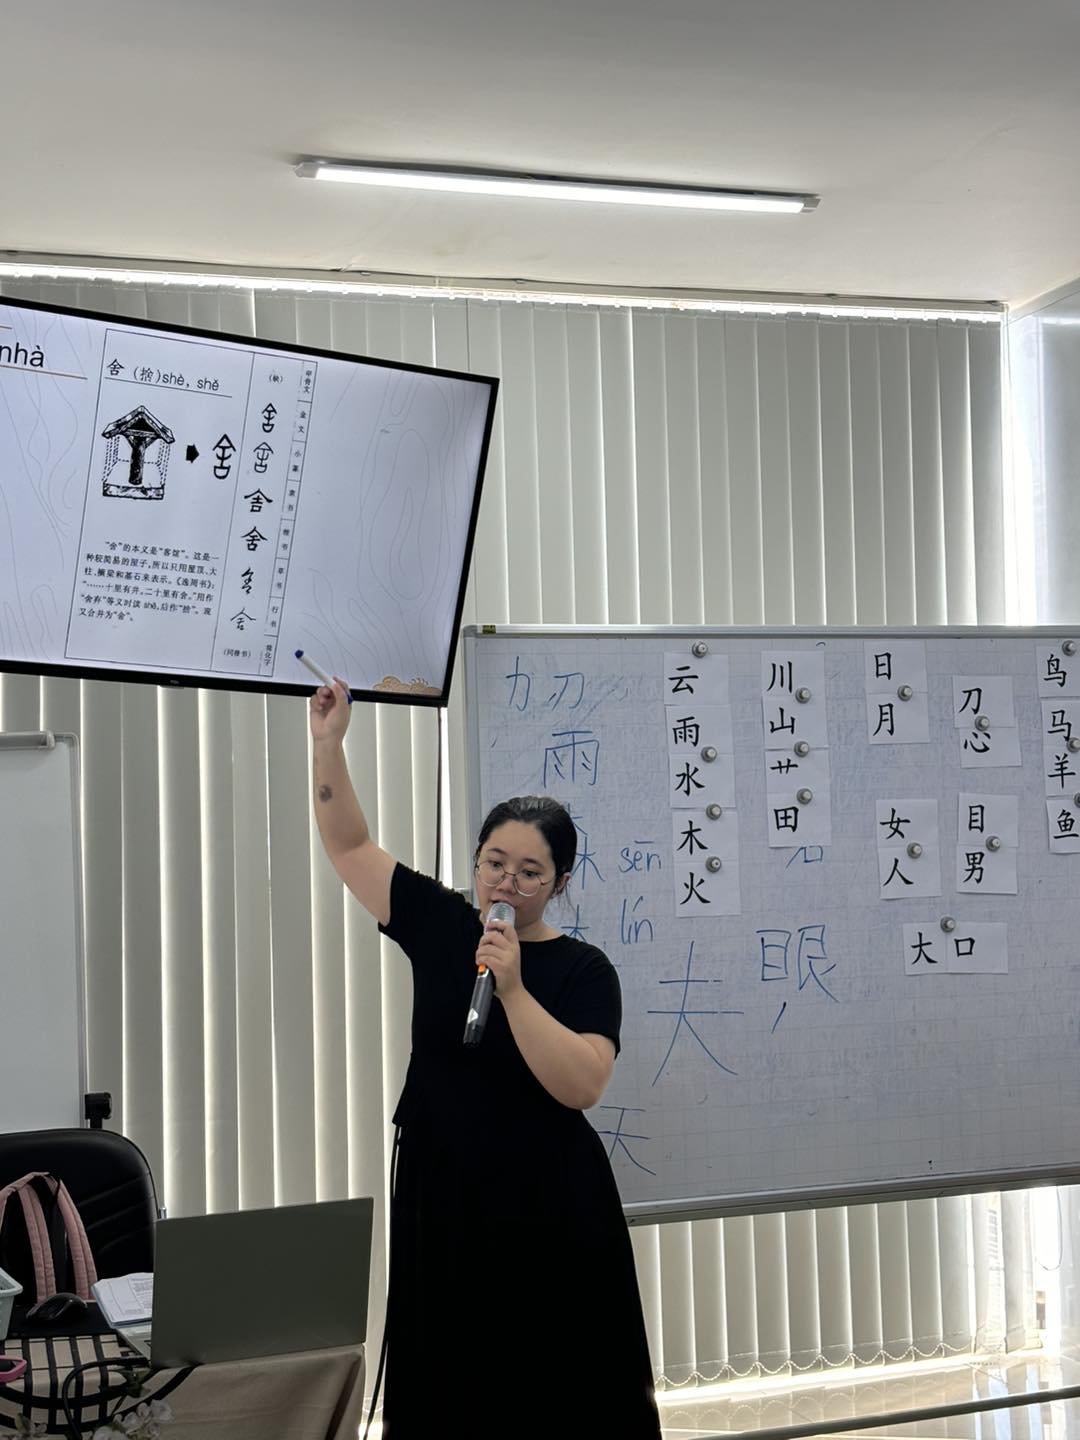 nhà
舍 (捨)shè, shě
(缺)
舍
甲骨文
金文
小篆
隶书
楷书
草书
行书
简化字
(同楷书)
“舍”的本义是“客馆”。这是一
种较简易的屋子,所以只用屋顶、大
柱、横梁和基石来表示。《逸周书》:
“……十里有井,二十里有舍。”用作
“舍弃”等义时读 shě,后作“捨”。现
又合并为“舍”。
力 刀
雨
森 sēn
林 lín
夫
眼
天
云
雨
水
木
火
川
山
艹
田
日
月
刀
心
女
人
目
男
大 口
鸟
马
羊
鱼